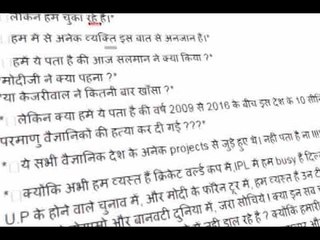 लेकिन हम चुका रहे हैं।*
हम में से अनेक व्यक्ति इस बात से अनजान है।*
हमे ये पता है की आज सलमान ने क्या किया ?*
मोदीजी ने क्या पहना ?*
या केजरीवाल ने कितनी बार खाँसा ?*
*लेकिन क्या हमे ये पता है की वर्ष 2009 से 2016 के बीच इस देश के 10 सीनि
परमाणु वैज्ञानिको की हत्या कर दी गई ???*
*ये सभी वैज्ञानिक देश के अनेक projects से जुड़े हुए थे। नही पता है ना !!!
*क्योंकि अभी हम व्यस्त हैं क्रिकेट वर्ल्ड कप में,IPL में हम busy है दिल
U.P के होने वाले चुनाव में, और मोदी के फॉरेन टूर में, हम व्यस्त है उन टी
और बानवटी दुनिया में, जरा सोचिये। क्या इन सब
नही डाल रहे है ? क्योंकि हमारी